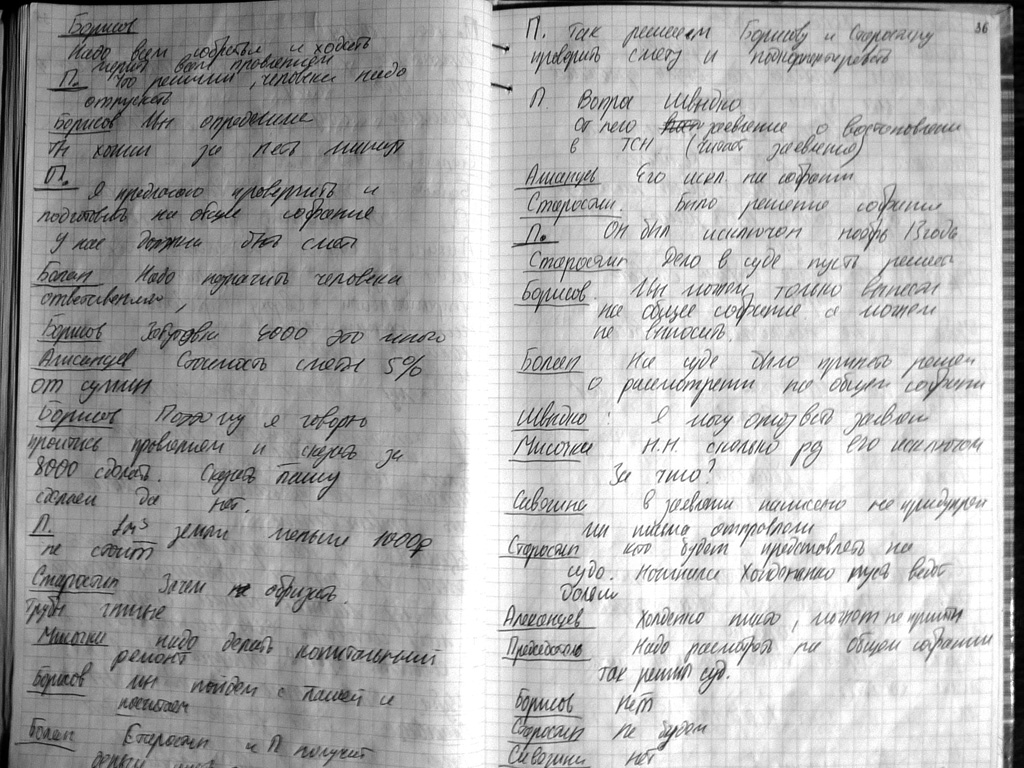 Борисов
Надо всем собраться и ходить
П. Что решили, человека надо
отпускать
Борисов Мы определим
за пять минут
П.
Я предлагаю проверить и
подготовить на общее собрание
У нас должна быть смета
Болян Надо назначить человека
ответственного,
Борисов 8000 это много
Алисанцев Стоимость сметы 5%
от суммы
Борисов Почему я говорю
правлением и сказать за
8000 сделать. Сказать Пашу
сделаем да нет.
П. 1м³ земли меньше 1000р
не стоит
Старостин Зачем обрезать.
Трубы гнилые
Мисочка надо делать капитальный
ремонт
Борисов Мы пойдем с Пашей и
посчитаем
Болян Старостин и П получит
деньги
36
П. Так решаем Борисову и Старостину
проверить смету и
П. Вопрос Швыдко
от него заявление о востоновлении
в ТСН (читает заявление)
Алисанцев Его искл. на собрании
Старостин. Было решение собрания
П. Он был исключон ноябрь 13 года
Старостин Дело в суде пусть решает
Борисов. Мы можем только вынести
на общее собрание а можем
не выносить.
Болян На суде было принято решен
о рассмотрении на общем собрании
Швыдко: Я могу отозвать заявлен
Мисочка Н.Н. сколько раз его исключали
За что?
Сивошина в заявлении написано не
ни письма отправляли
Старостин кто будет представлять на
суде. Нанимали пусть ведет
Болян
Алексанцев может не прийти
Председатель Надо рассмотреть на общем собрании
так решил суд.
Борисов нет
Старостин не будем
Сивошина нет